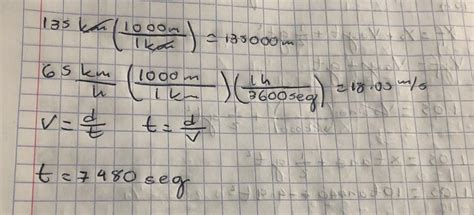 135 km (1000m / 1km) = 135000m
65 km/h (1000m / 1km) (1h / 3600seg) = 18.05 m/s
V = d/t t = d/V
t = 7480 seg